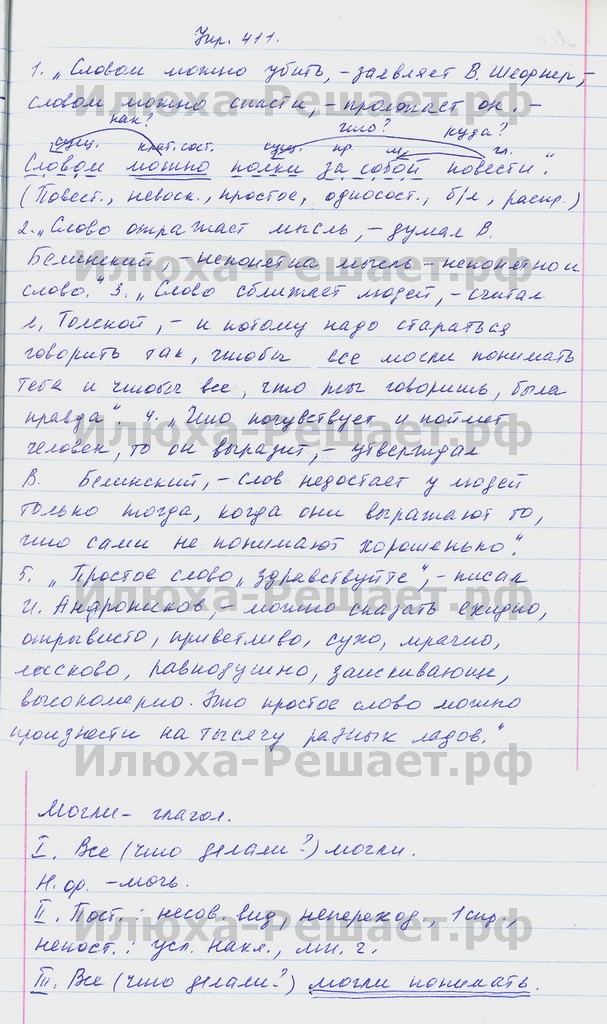 Упр. 411.
1. „Словом можно убить, – заявляет В. Шефнер, –
словом можно спасти, – продолжает он. –
как? что? куда?
сущ. крат. сост. сущ. пр. м. гл.
Словом можно полки за собой повести".
(Повест., невоск., простое, односост., б/л, распр.)
2. „Слово отражает мысль, – думал В.
Белинский, – непонятна мысль – непонятно и
слово." 3. „Слово сближает людей, – считал
Л. Толстой, – и потому надо стараться
говорить так, чтобы все могли понимать
тебя и чтобы все, что ты говоришь, была
правда". 4. „Что почувствует и поймет
человек, то он выразит, – утверждал
В. Белинский, – слов недостает у людей
только тогда, когда они выражают то,
что сами не понимают хорошенько".
5. „Простое слово „здравствуйте", – писал
И. Андроников, – можно сказать ехидно,
отрывисто, приветливо, сухо, мрачно,
ласково, равнодушно, заискивающе,
высокомерно. Это простое слово можно
произнести на тысячу разных ладов."
Могли – глагол.
I. Все (что делали?) могли.
Н. ф. – мочь.
II. Пост.: несов. вид, непереход., 1 спр.,
непост.: усл. накл., мн. ч.
III. Все (что делали?) могли понимать.
Илюха-Решает.рф
Илюха-Решает.рф
Илюха-Решает.рф
Илюха-Решает.рф
Илюха-Решает.рф
Илюха-Решает.рф
Илюха-Решает.рф
Илюха-Решает.рф